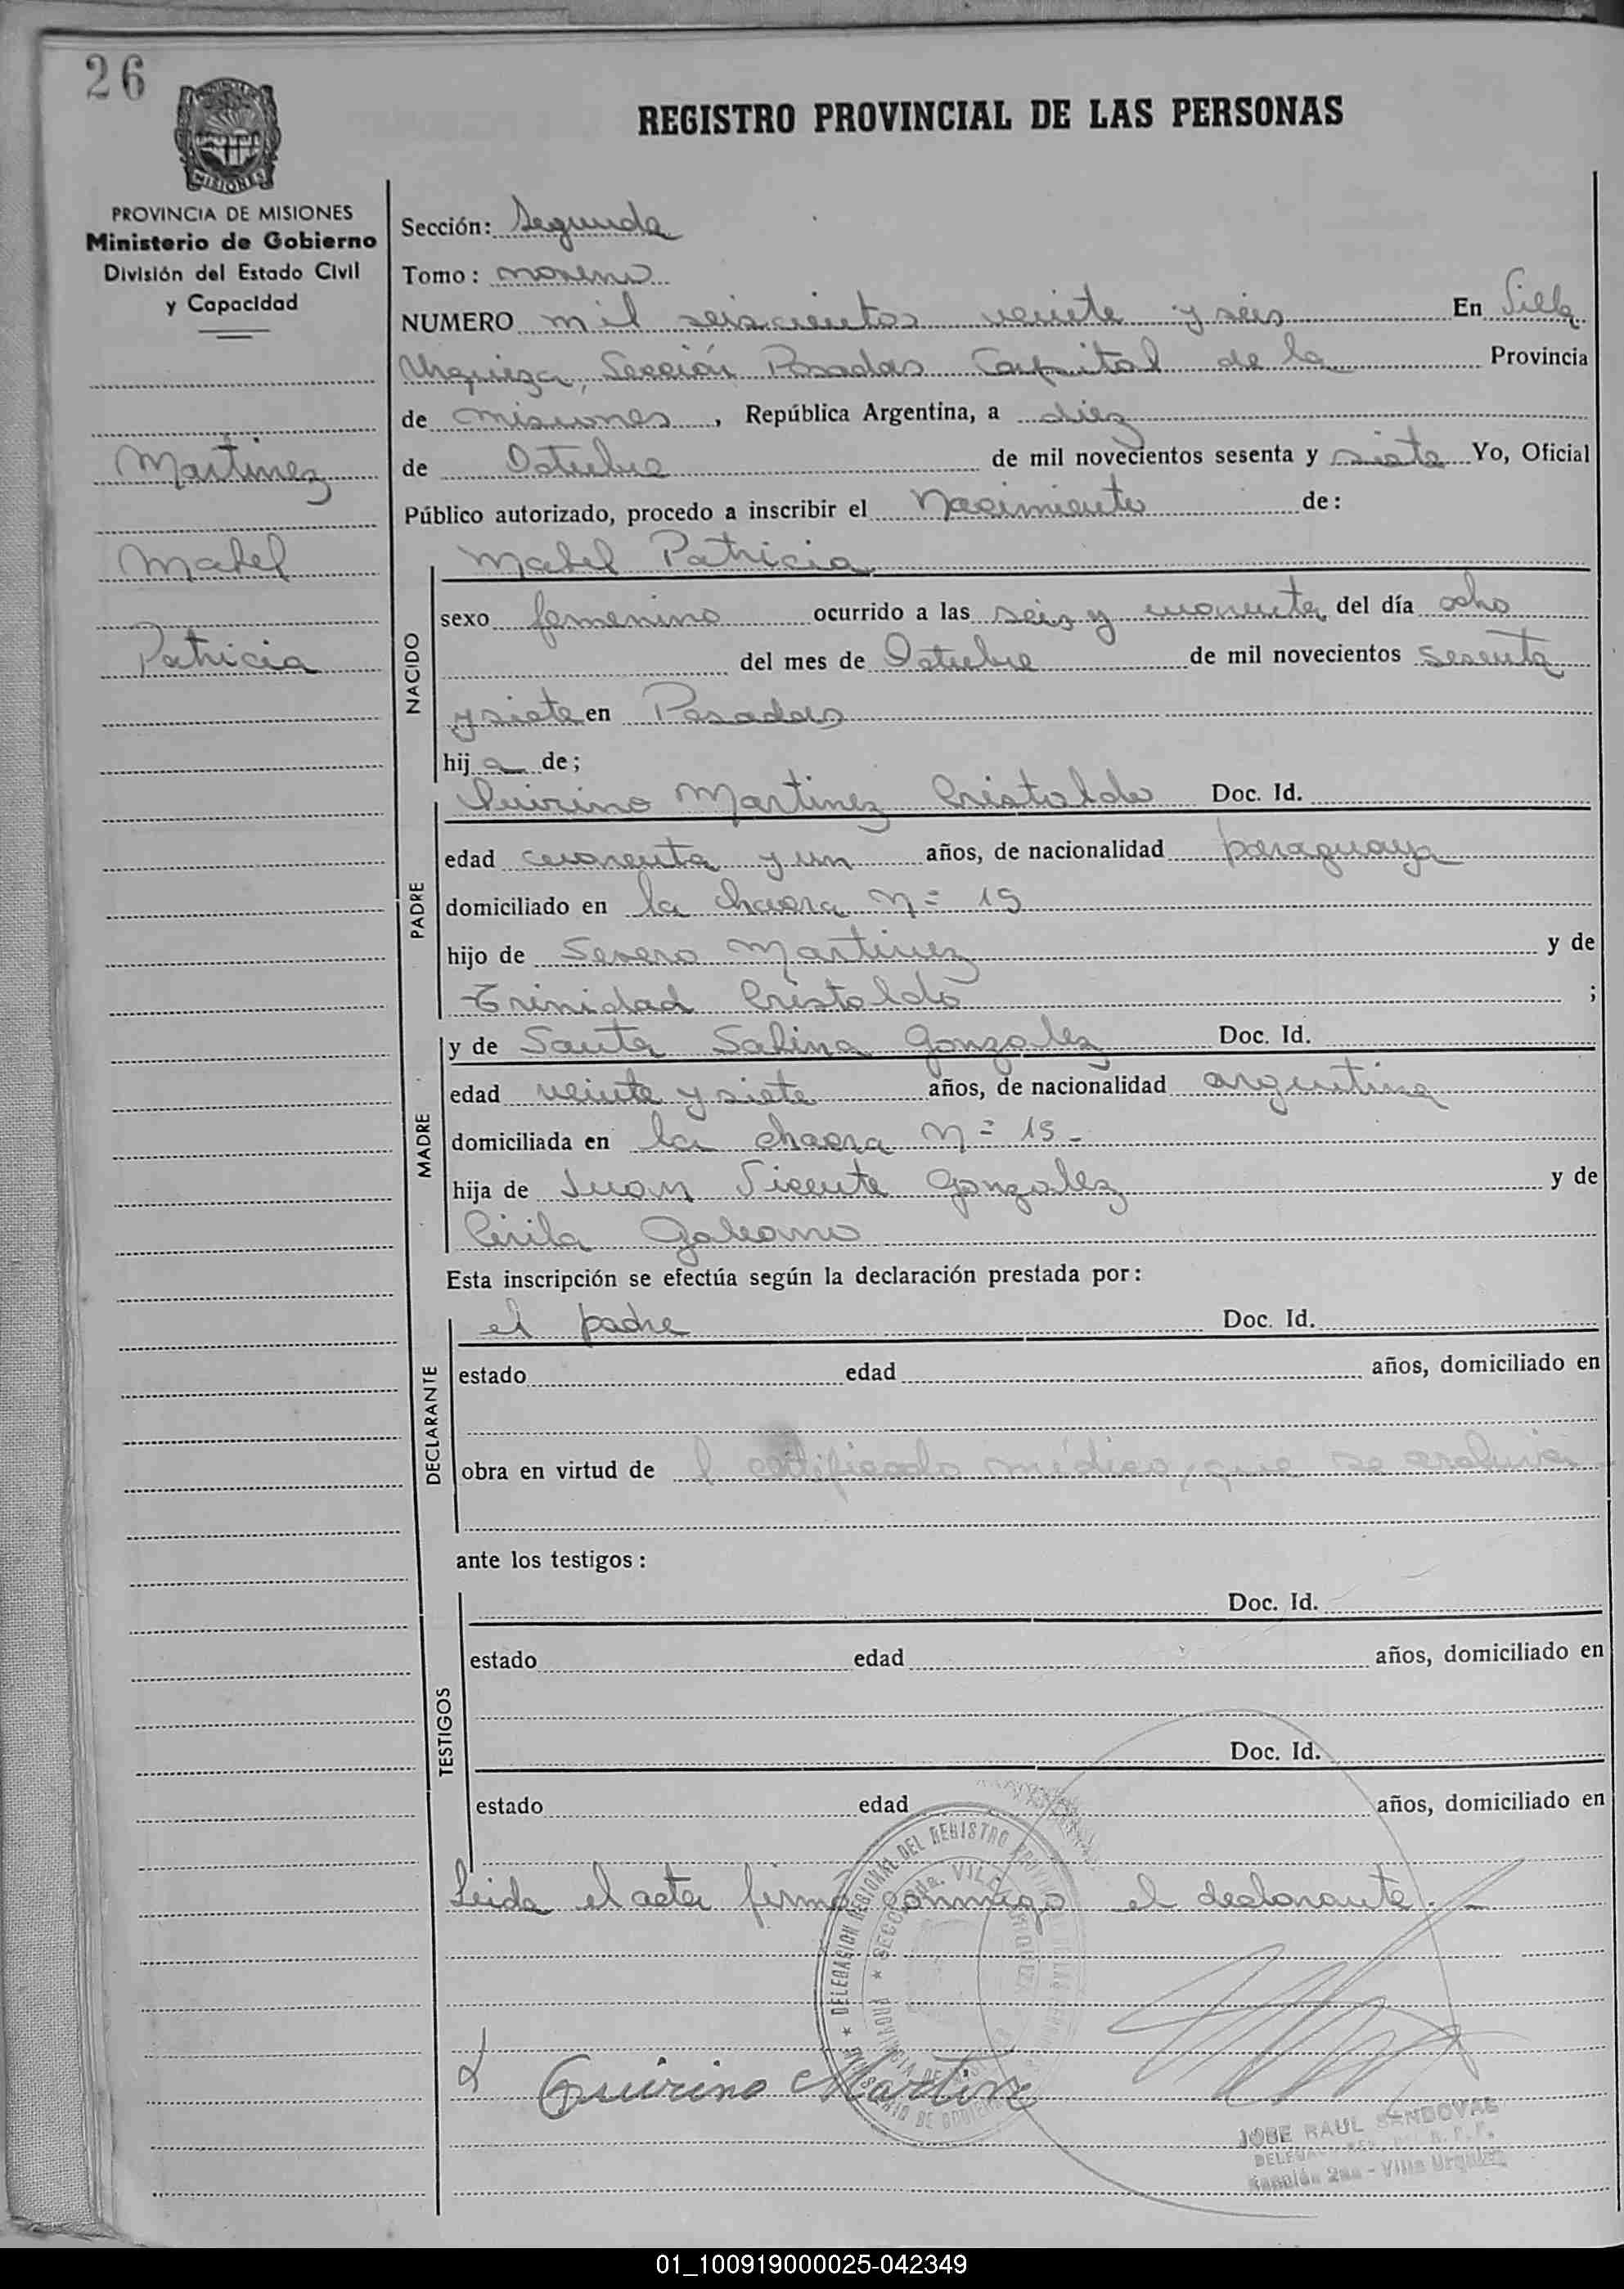 26
MISIONES
REGISTRO PROVINCIAL DE LAS PERSONAS
PROVINCIA DE MISIONES
Ministerio de Gobierno
División del Estado Civil
y Capacidad
Martinez
Mabel
Patricia
Sección: Segunda
Tomo: noveno
NUMERO mil seiscientos veinte y seis En Villa
Urquiza, Sección Posadas Capital de la Provincia
de misiones, República Argentina, a diez
de Octubre de mil novecientos sesenta y siete Yo, Oficial
Público autorizado, procedo a inscribir el Nacimiento de:
NACIDO
Mabel Patricia
sexo femenino ocurrido a las seis y cuarenta del día ocho
del mes de Octubre de mil novecientos sesenta
y siete en Posadas
hij a de;
PADRE
Quirino Martinez Cristaldo Doc. Id.
edad cuarenta y un años, de nacionalidad paraguaya
domiciliado en la chacra N= 15
hijo de Severo Martinez y de
Trinidad Cristaldo ;
MADRE
y de Santa Sabina Gonzalez Doc. Id.
edad veinte y siete años, de nacionalidad argentina
domiciliada en la chacra N= 15-
hija de Juan Vicente Gonzalez y de
Cirila Galeano
Esta inscripción se efectúa según la declaración prestada por:
DECLARANTE
el padre Doc. Id.
estado edad años, domiciliado en
obra en virtud de l certificado médico, que se archiva
ante los testigos:
TESTIGOS
Doc. Id.
estado edad años, domiciliado en
Doc. Id.
estado edad años, domiciliado en
Leida el acta firma conmigo el declarante.-
DELEGACION REGIONAL DEL REGISTRO
SECCION 2da. VILLA URQUIZA
Quirino Martine
JOSE RAUL SANDOVAL
Sección 2da - Villa Urquiza
01_100919000025-042349